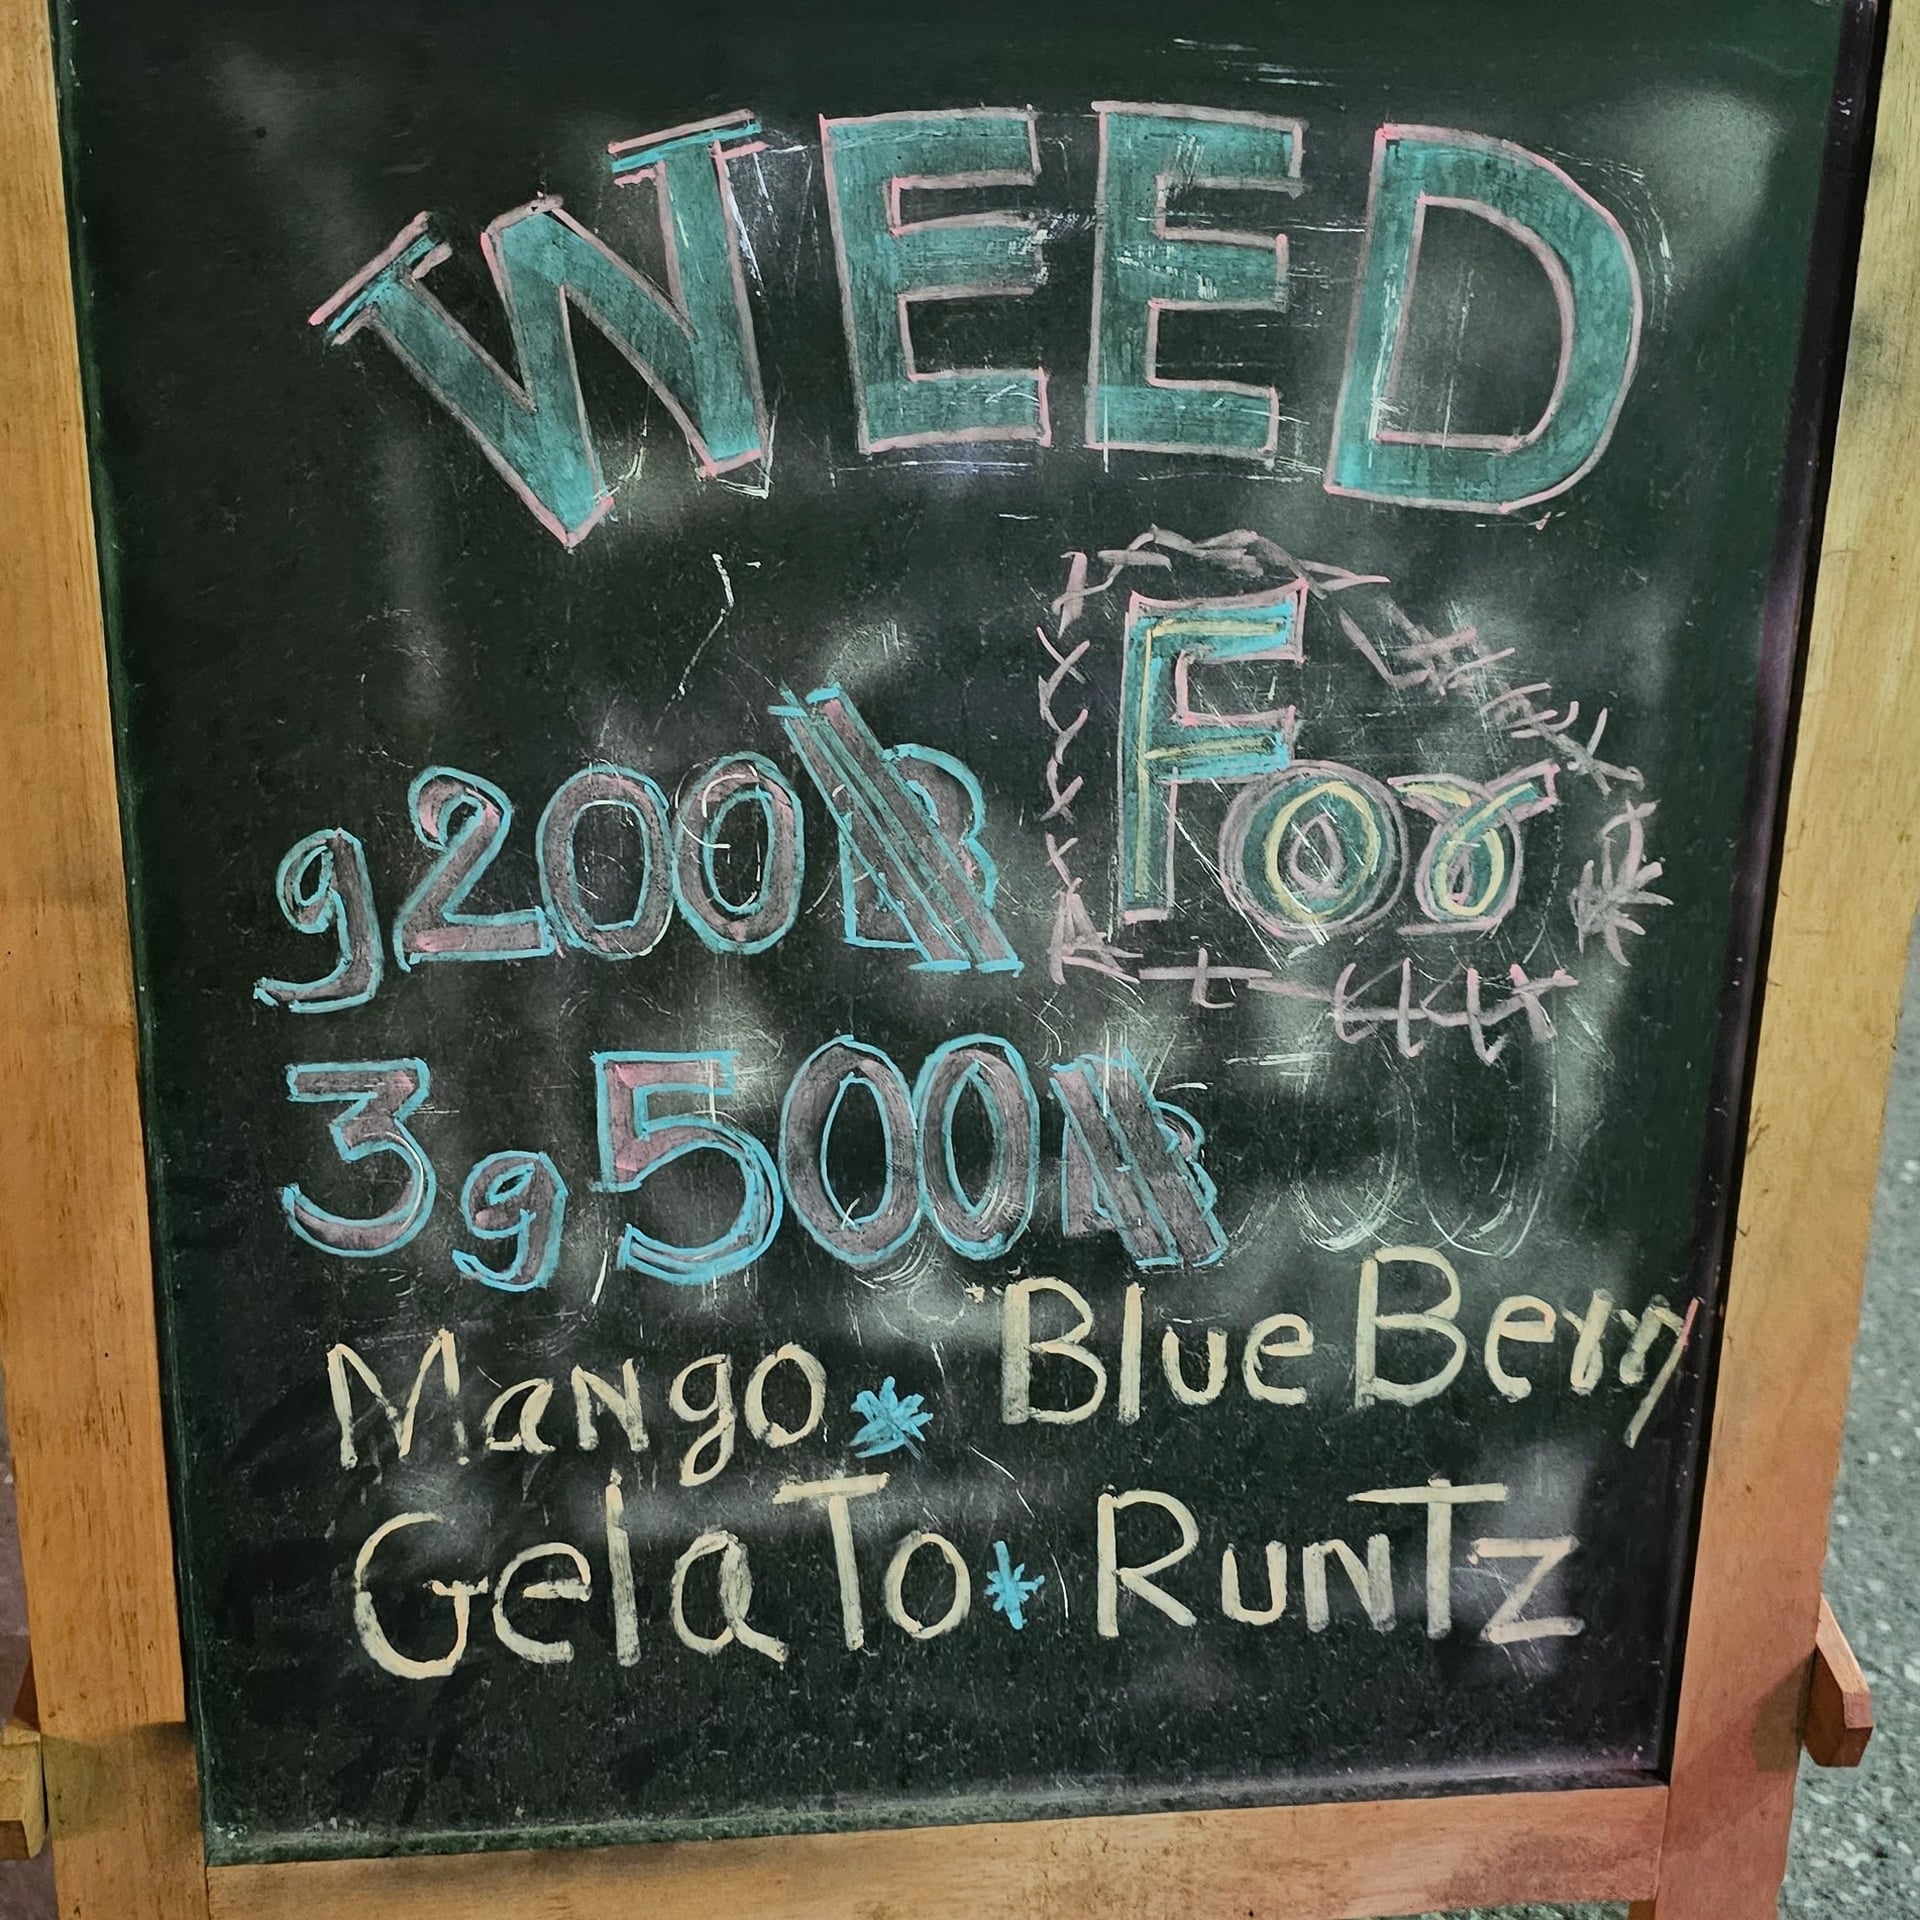 WEED
For
g 200฿
3g 500฿
Mango * Blue Berry
GelaTo * RunTz